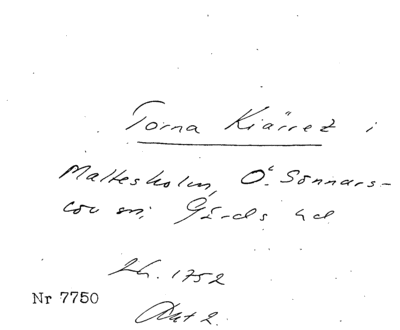 Torna Kiärret i
Maltesholm, Ö. Sönnars-
löv sn; Gärds hd
Lh. 1752
Nr 7750
Akt 2.